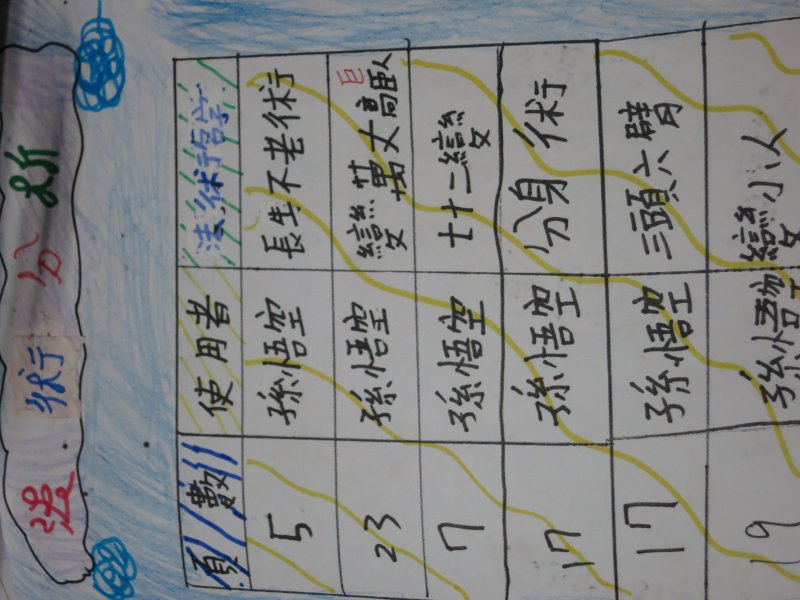 法術分析
頁數 使用者 法術名字
5 孫悟空 長生不老術
23 孫悟空 變萬丈高巨人
7 孫悟空 七十二變
17 孫悟空 分身術
17 孫悟空 三頭六臂
19 孫悟空 變小人